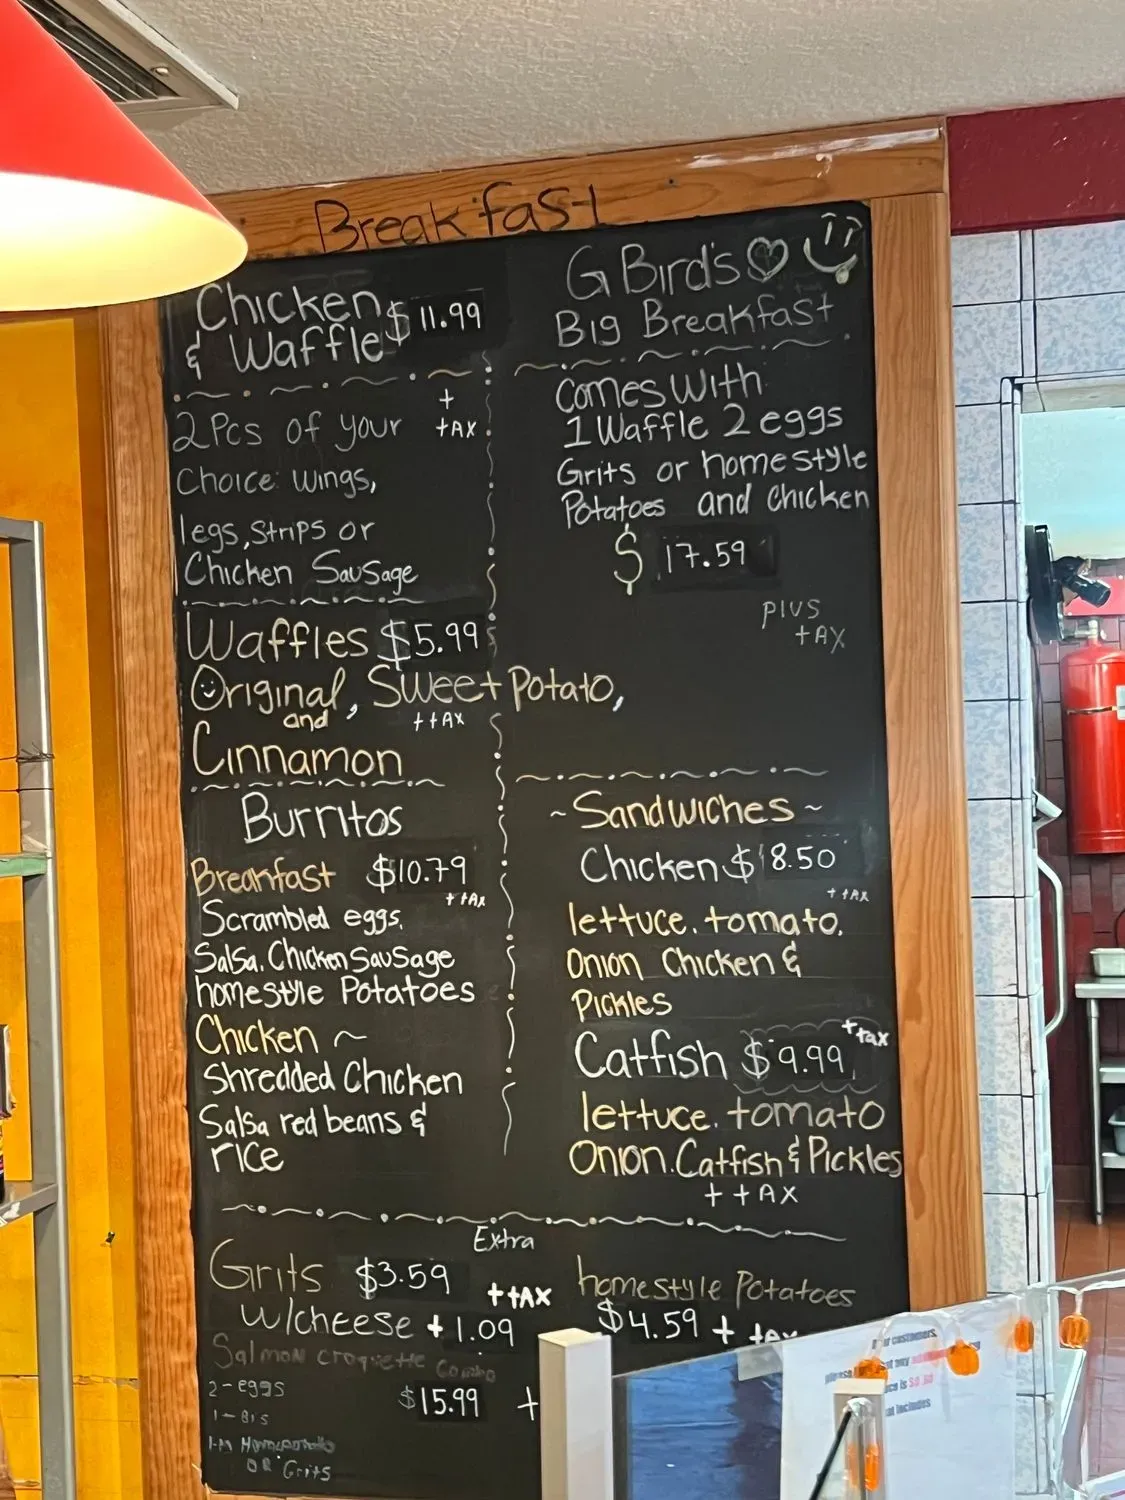 Breakfast
Chicken
& Waffle $11.99
+
+AX
2Pcs of your
Choice: wings,
legs, strips or
Chicken Sausage
Waffles $5.99
Original, Sweet Potato,
and
++AX
Cinnamon
Burritos
Breakfast $10.79
++AX
Scrambled eggs.
Salsa. Chicken Sausage
homestyle Potatoes
Chicken ~
Shredded Chicken
Salsa red beans &
rice
G Bird's
Big Breakfast
Comes With
1 Waffle 2 eggs
Grits or homestyle
Potatoes and chicken
$ 17.59
plus
+AX
~ Sandwiches ~
Chicken $ 8.50
++AX
lettuce. tomato.
Onion Chicken &
Pickles
Catfish $9.99
+tax
lettuce. tomato
Onion. Catfish & Pickles
++AX
Extra
Grits $3.59 ++AX
w/cheese +1.09
homestyle Potatoes
$4.59 + +ax
Salmon croquette Combo
2-eggs
$15.99 +
1-Bis
OR Grits
customers.